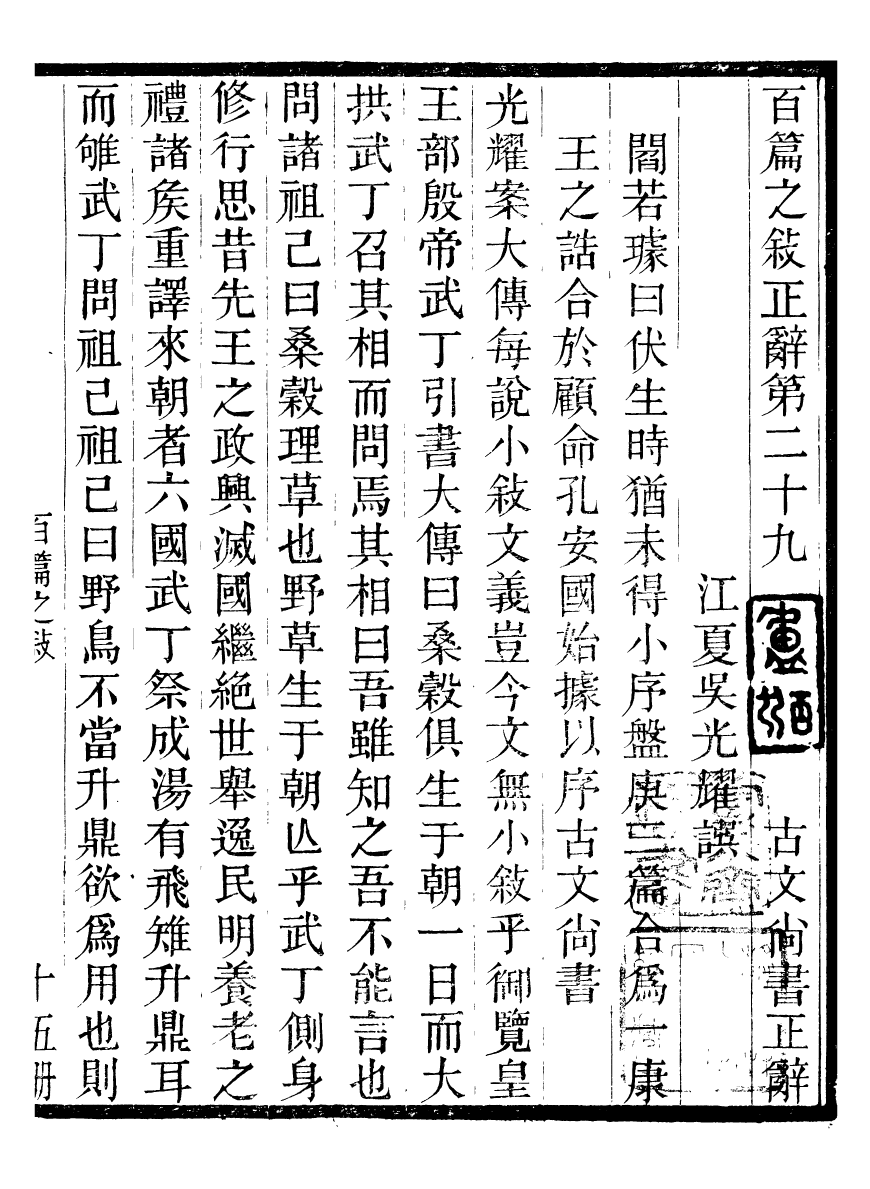 百篇之敍正辭第二十九　古文尙書正辭
江夏吳光耀譔
閻若璩曰伏生時猶未得小序盤庚三篇合爲一康
王之誥合於顧命孔安國始據以序古文尙書
光耀案大傳每說小敍文義豈今文無小敍乎御覽皇
王部殷帝武丁引書大傳曰桑穀俱生于朝一日而大
拱武丁召其相而問焉其相曰吾雖知之吾不能言也
問諸祖己曰桑穀理草也野草生于朝亾乎武丁側身
修行思昔先王之政興滅國繼絕世舉逸民明養老之
禮諸矦重譯來朝者六國武丁祭成湯有飛雉升鼎耳
而雊武丁問祖己祖己曰野鳥不當升鼎欲爲用也則
百篇之敍
十五册